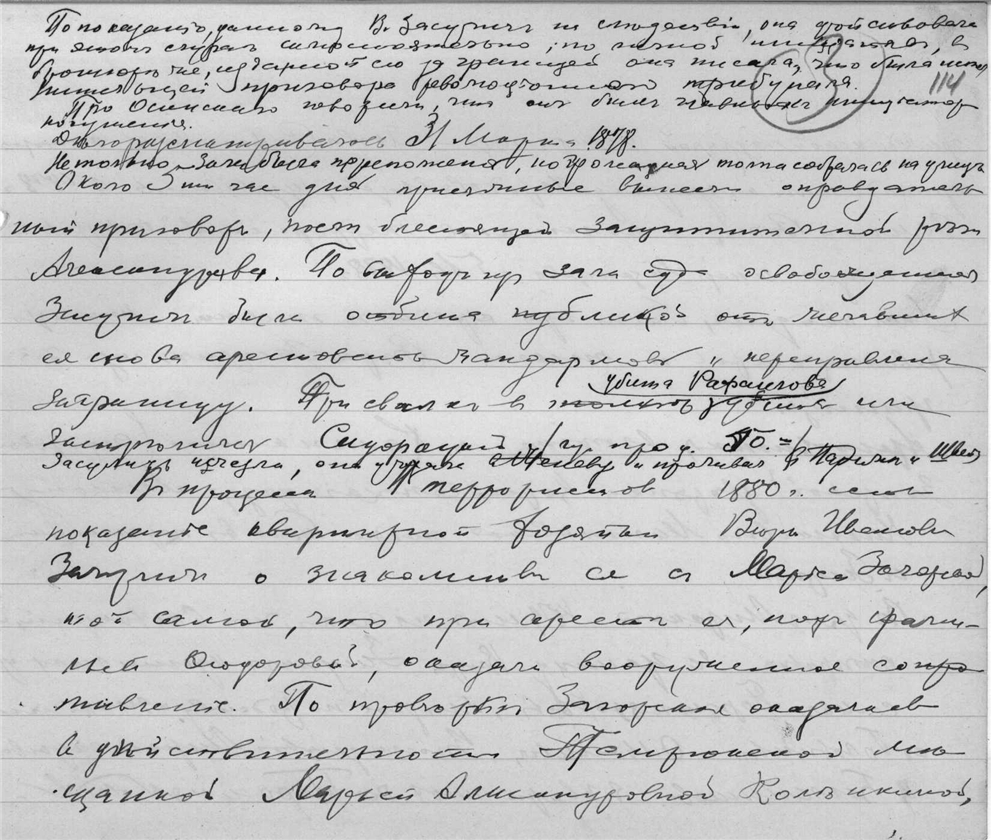 По показанію, данному В. Засуличъ на слѣдствіи, она дѣйствовала
при этомъ случаѣ самостоятельно, по личной иниціативѣ, в
брошюрѣ же, изданной ею за границей она писала, что была испол
нительницей приговора революціоннаго трибунала. 114
Про Осинскаго говорили, что онъ былъ главнымъ иниціатор
покушенія.
Дѣло разсматривалось 31 Марта 1878.
Не только зала была переполнена, но громадная толпа собралась на улицѣ
Около 5 ти час дня присяжные вынесли оправдатель
ный приговоръ, послѣ блестящей защитительной рѣчи
Александрова. По выходѣ из зала суда освобожденная
Засуличъ была отбита публикой отъ желавших
ея снова арестовать жандармовъ и переправлена
заграницу. При свалкѣ в толпѣ убита или
убита Рафаилова
застрѣлился Сидорацкій
Засуличъ изчезла, она уѣхала в Женеву и проживала в Парижѣ и Швей
В процессѣ террористов 1880 г. есть
показаніе квартирной хозяйки Вѣры Ивановны
Засуличъ о знакомствѣ ея съ Марьей Загорской,
той самой, что при арестѣ ея, подъ фами-
ліей Федоровой, оказала вооруженное сопро
тивленіе. По провѣркѣ Загорская оказалась
в дѣйствительности Темрюкской мѣ
щанкой Марьей Александровной Коленкиной,